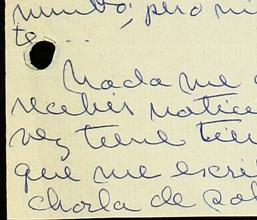 mundo; pero ni
te...
Nada me
recibir notici
vez tiene tie
que me escri
charla de sob